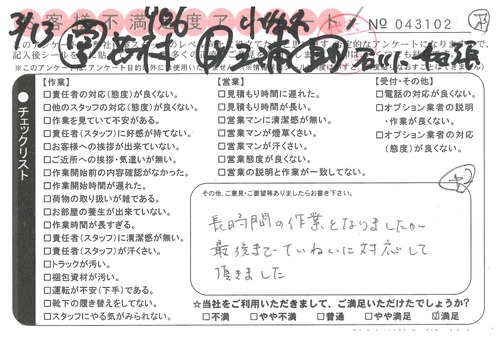 お客様不満足度アンケート
№ 043102
3/13
チェックリスト
【作業】
□責任者の対応(態度)が良くない。
□他のスタッフの対応(態度)が良くない。
□作業を見ていて不安がある。
□責任者(スタッフ)に好感が持てない。
□お客様への挨拶が出来ていない。
□ご近所への挨拶・気遣いが無い。
□作業開始前の内容確認がなかった。
□作業開始時間が遅れた。
□荷物の取り扱いが雑である。
□お部屋の養生が出来ていない。
□作業時間が長すぎる。
□責任者(スタッフ)に清潔感が無い。
□責任者(スタッフ)が汗くさい。
□トラックが汚い。
□梱包資材が汚い。
□運転が不安(下手)である。
□靴下の履き替えをしてない。
□スタッフにやる気がみられない。
【営業】
□見積もり時間に遅れた。
□見積もり時間が長い。
□営業マンに清潔感が無い。
□営業マンが煙草くさい。
□営業マンが汗くさい。
□営業態度が良くない。
□営業の説明と作業が一致してない。
【受付・その他】
□電話の対応が良くない。
□オプション業者の説明
・作業が良くない。
□オプション業者の対応
(態度)が良くない。
その他、ご意見・ご要望等ありましたらお書き下さい。
長時間の作業となりましたが
最後までていねいに対応して
頂きました
☆当社をご利用いただきまして、ご満足いただけたでしょうか?
□不満 □やや不満 □普通 □やや満足 ☑満足